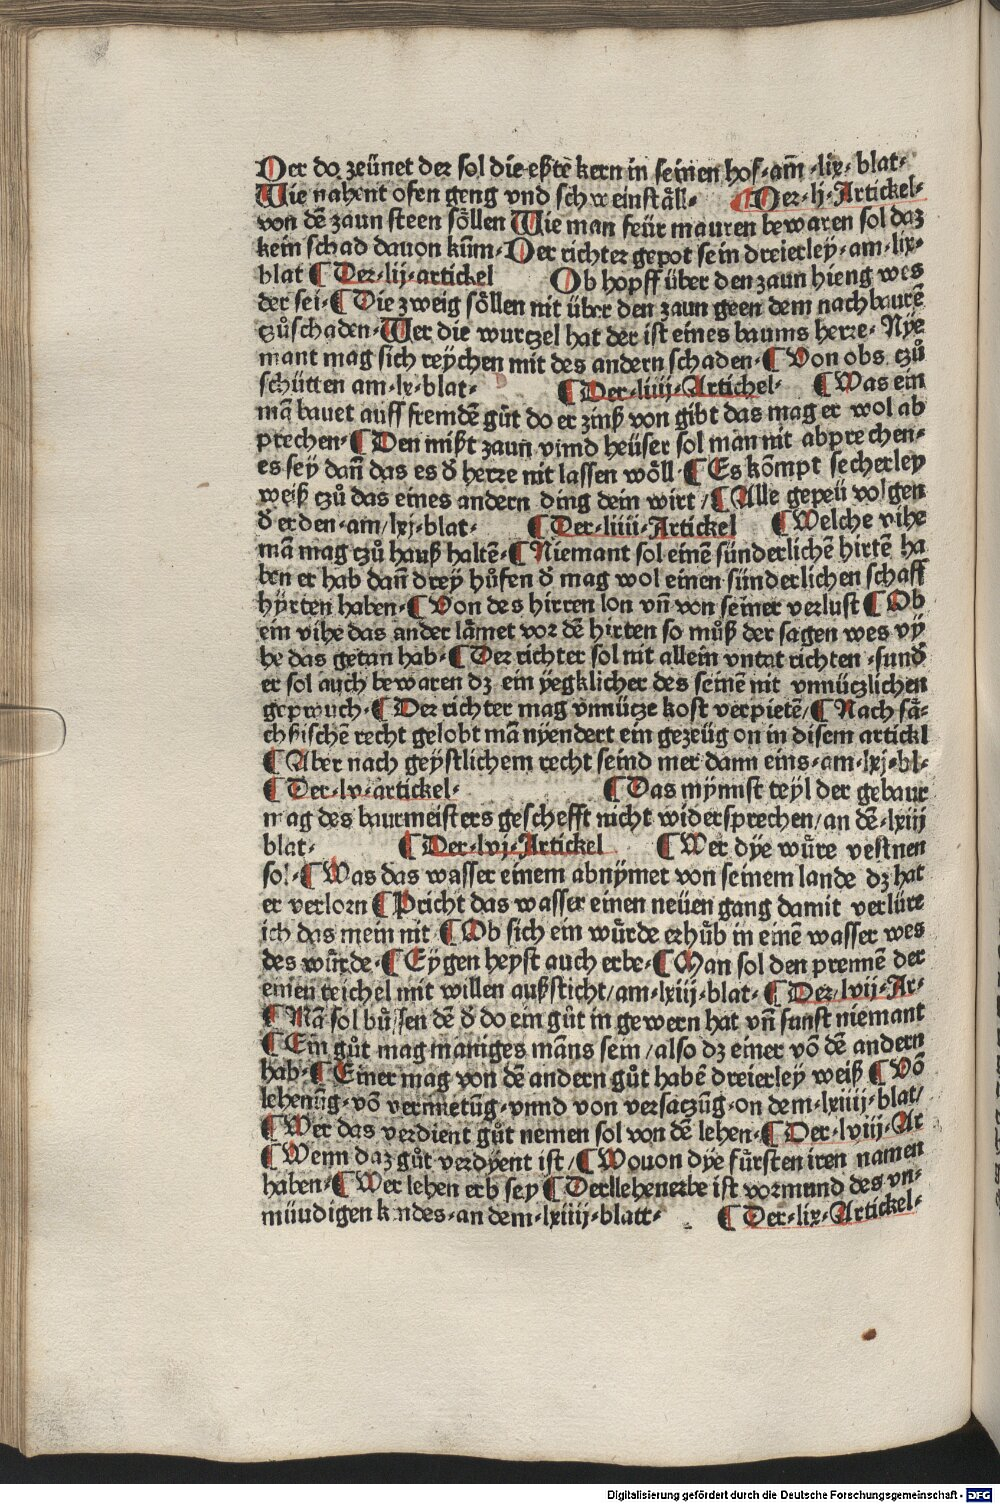 Der do zeünet der sol die eßtē kern in seinen hof· am̄ ·lix· blat·
Wie nahent ofen geng vnd schweinställ· ¶ Der·lj·Artickel·
von dē zaun steen söllen Wie man feür mauren bewaren sol daz
kein schad dauon kūm· Der richter gepot sein dreierley· am·lix·
blat ¶ Der·lij·artickel Ob hopff über den zaun hieng wes
der sei·¶ Die zweig söllen nit über den zaun geen dem nachbaurē
czůschaden· Wer die wurczel hat der ist eines baums herre· Nye
mant mag sich reÿchen mit des andern schaden·¶ Von obs czů
schütten am·lx·blat· ¶ Der·liiij·Artichel· ¶ Was ein
mā bauet auff fremdē gůt do er zinß von gibt das mag er wol ab
prechen·¶ Den mißt zaun vnnd heüser sol man nit abprechen·
es seÿ dan̄ das es d̄ herre nit lassen wöll·¶ Es kōmpt secherley
weiß czů das eines andern ding dein wirt/¶ Alle gepeü volgen
d̄ erden·am/lxj·blat· ¶ Der·liiii·Artickel ¶ Welche vihe
mā mag czů hauß haltē·¶ Niemant sol einē sünderlichē hirtē ha
ben er hab dan̄ dreÿ hůfen d̄ mag wol einen sünderlichen schaff
hÿrten haben·¶ Von des hirren lon vn̄ von seiner verlust ¶ Ob
ein vihe das ander lämet vor dē hirten so můß der sagen wes vÿ
he das getan hab·¶ Der richter sol nit allein vntat richten·sund̄
er sol auch bewaren dz ein ÿegklicher des seinē nit vnnüczlichen
geprauch·¶ Der richter mag vnnücze kost verpietē/¶ Nach sä⸗
chsischē recht gelobt mā nÿendert ein gezeüg on in disem artickl
¶ Aber nach geÿstlichem recht seind mer dann eins·am·lxj·bl·
¶ Der·lv·artickel· ¶ Das mÿnnst teÿl der gebaur
mag des baurmeisters geschefft nicht widersprechen/an dē·lxiij
blat· ¶ Der·lvj·Artickel ¶ Wer dÿe wůre vestnen
sol·¶ Was das wasser einem abnÿmet von seinem lande dz hat
er verlorn ¶ Pricht das wasser einen neüen gang damit verlüre
ich das mein nit ¶ Ob sich ein würde erhůb in einē wasser wes
des würde·¶ Eÿgen heÿst auch erbe·¶ Man sol den prennē der
einen teichel mit willen außsticht/am·lxiij·blat·¶ Der/lvij·Ar·
¶ Mā sol bůssen dē d̄ do ein gůt in gewern hat vn̄ sunst niemant
¶ Ein gůt mag maniges mans sein/also dz einer vō dē andern
hab·¶ Einer mag von dē andern gůt habē dreierleÿ weiß ¶ Vō
lehenūg·vō vermietūg·vnnd von versaczūg·on dem·lxiiij·blat/
¶ Wer das verdient gůt nemen sol von dē lehen·¶ Der·lviij·Ar
¶ Wenn daz gůt verdÿent ist/¶ Wouon dÿe fürsten iren namen
haben·¶ Wer lehen erb seÿ ¶ Der llehenerbe ist vormund des vn⸗
müudigen kindes·an dem·lxiiij·blatt· ¶ Der·lix·Artickel·
Digitalisierung gefördert durch die Deutsche Forschungsgemeinschaft - DFG